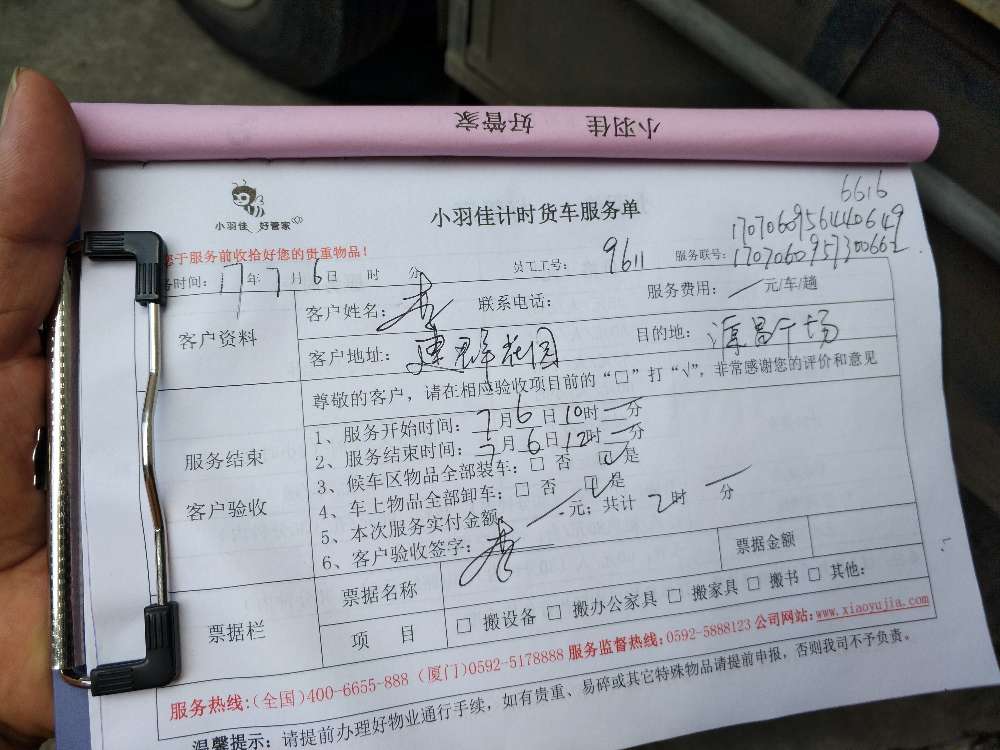 小羽佳 好管家
小羽佳 好管家
小羽佳计时货车服务单
6616
服务前收拾好您的贵重物品!
务时间: 17年7月6日 时 分 员工工号: 9611 服务联号: 1707060956440649
1707060957300662
客户资料
客户姓名: 李 联系电话: 服务费用: 一 元/车/趟
客户地址: 建群花园 目的地: 源昌广场
尊敬的客户,请在相应验收项目前的“□”打“√”,非常感谢您的评价和意见
服务结束
客户验收
1、服务开始时间: 7月6日10时 一 分
2、服务结束时间: 7月6日12时 一 分
3、候车区物品全部装车: □ 否 ☑ 是
4、车上物品全部卸车: □ 否 ☑ 是
5、本次服务实付金额 一 元; 共计 2时 一 分
6、客户验收签字: 李
票据栏
票据名称 票据金额
项 目 □ 搬设备 □ 搬办公家具 □ 搬家具 □ 搬书 □ 其他:
服务热线:(全国)400-6655-888 (厦门)0592-5178888 服务监督热线:0592-5888123 公司网站:www.xiaoyujia.com
温馨提示: 请提前办理好物业通行手续,如有贵重、易碎或其它特殊物品请提前申报,否则我司不予负责。